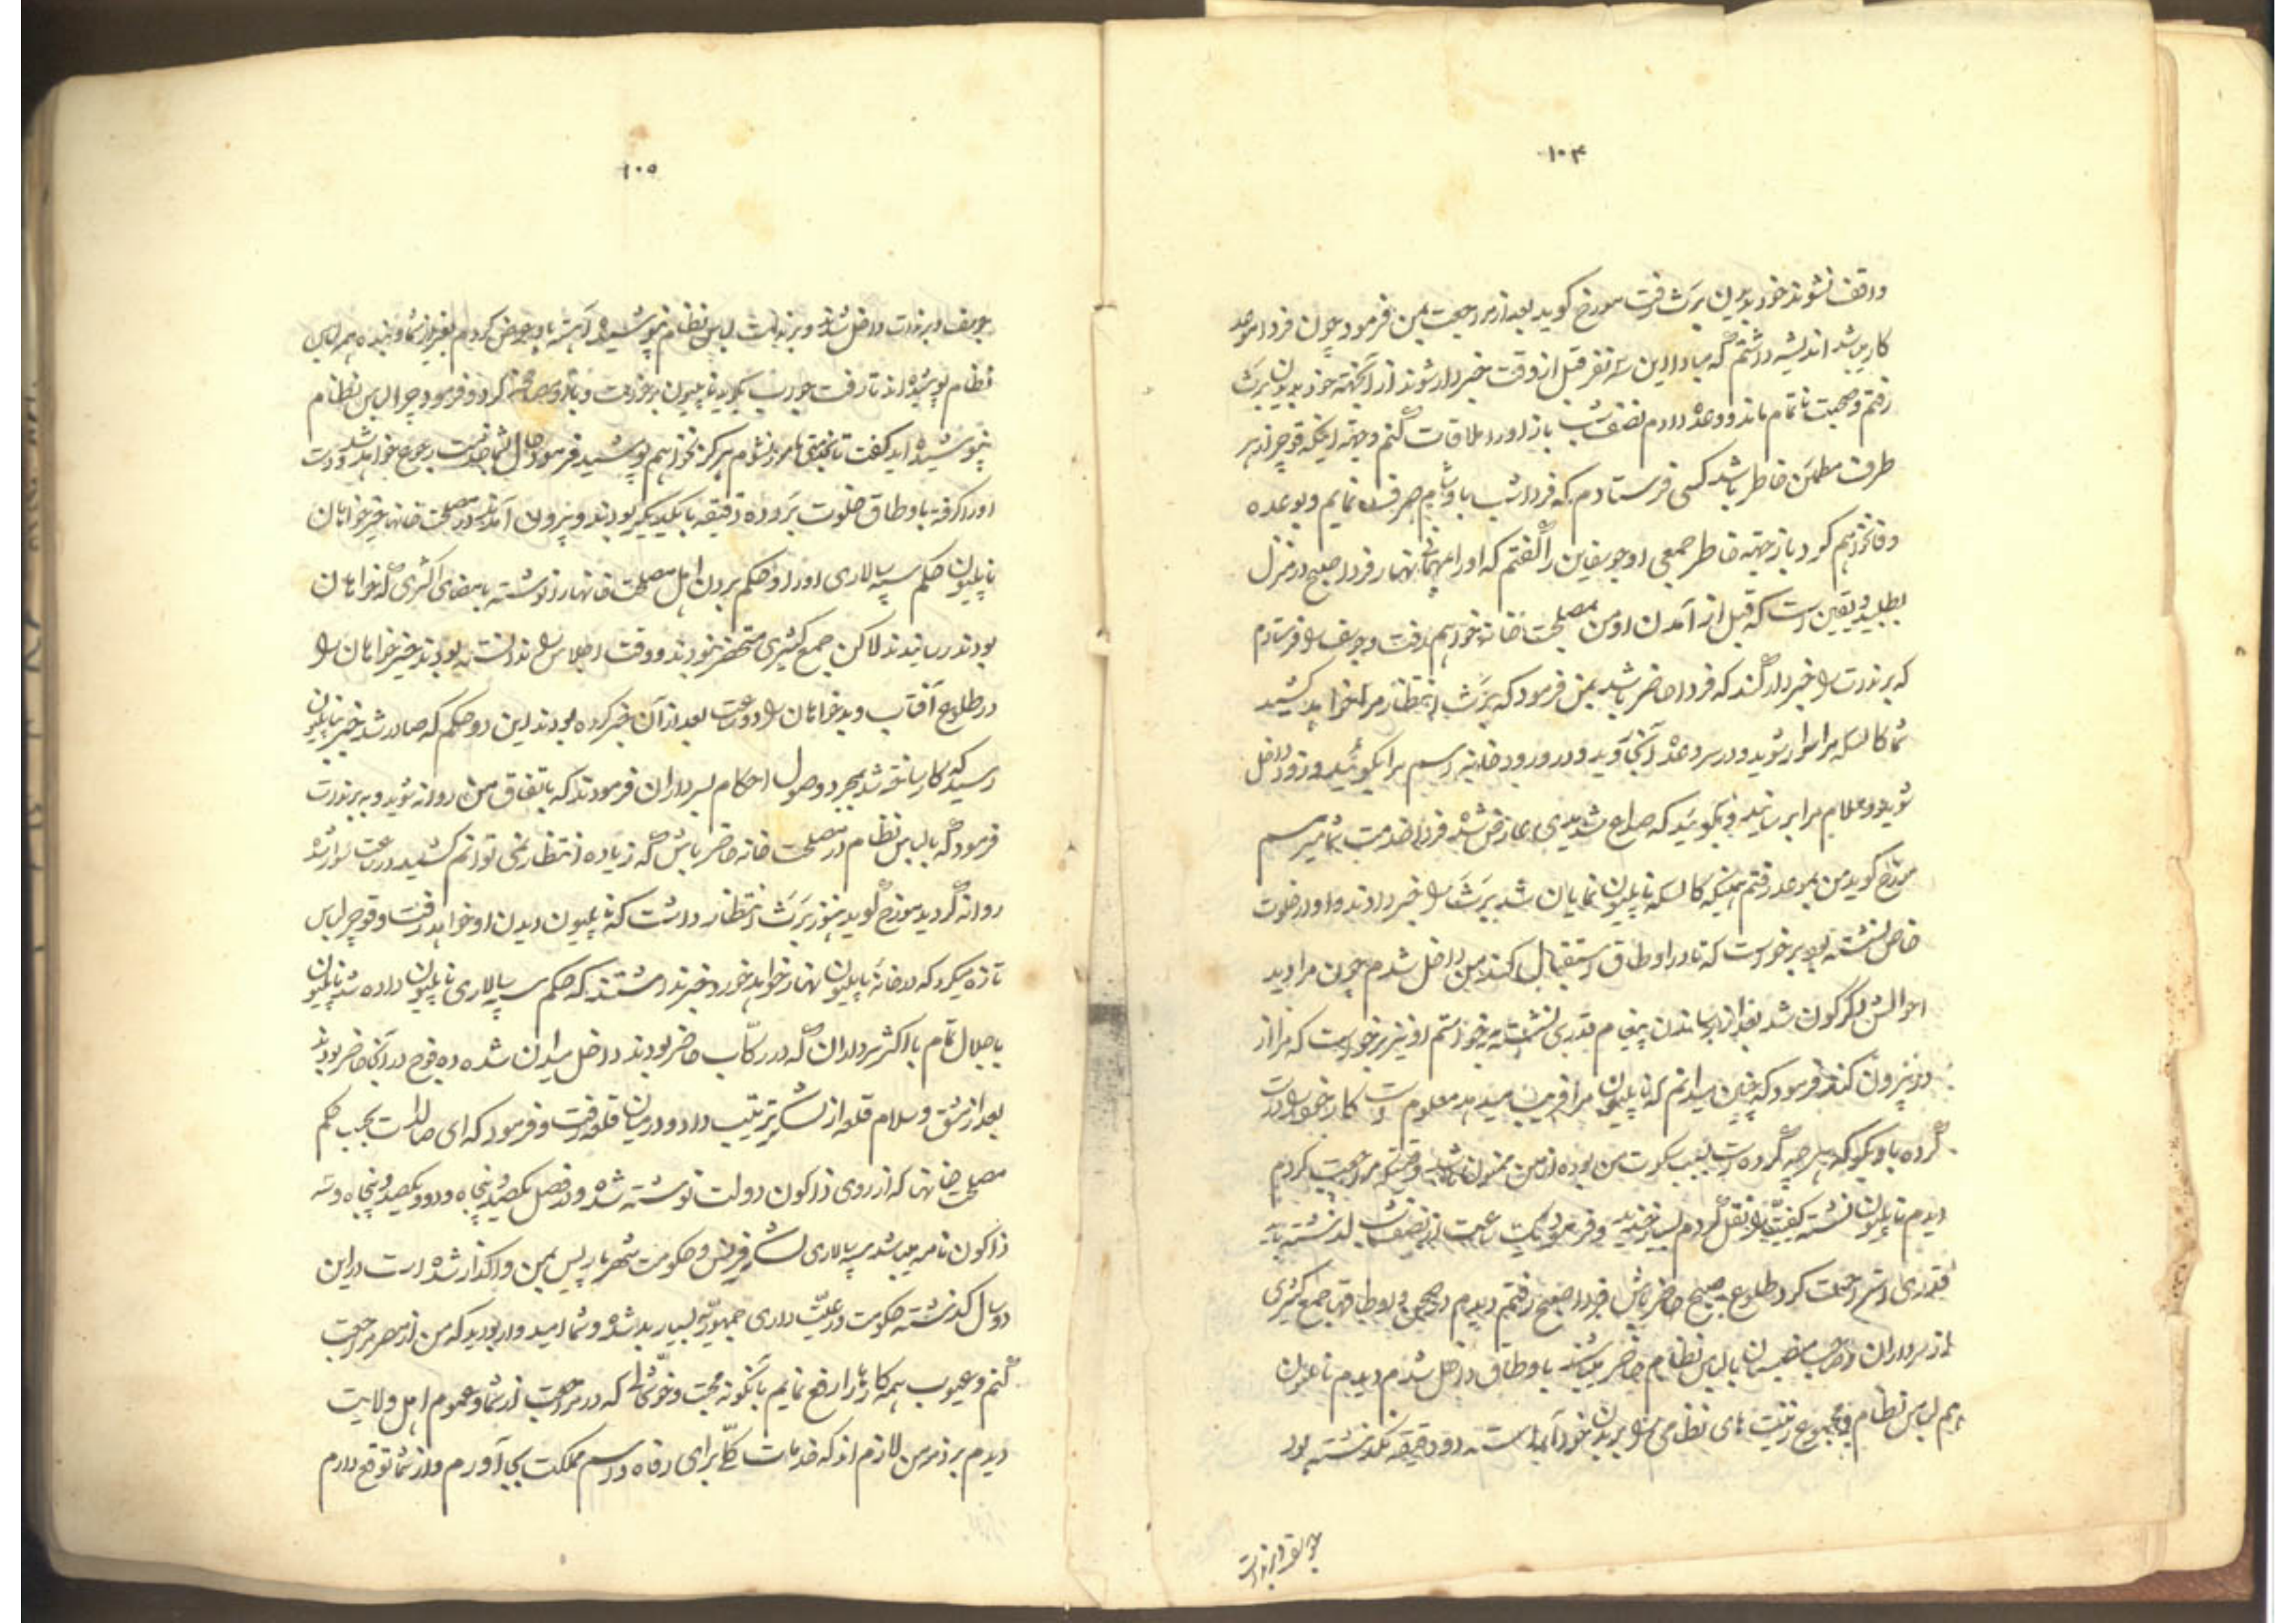 ۱۰۴
واقف نشوند خود بدیدن برث رفت مورخ گوید بعد از مراجعت بمن فرمود چون فردا موعد
کار میباشد اندیشه داشتم که مبادا این سه نفر قبل از وقت خبردار شوند از آنجهته خود بدیدن برث
رفتم و صحبت ناتمام ماند و وعده دادم نصف شب باز او را ملاقات کنم و جهته اینکه قوچر از هر
طرف مطمئن خاطر باشد کسی فرستادم که فردا شب با او شام صرف نمایم و بوعده
وفا نخواهم کرد باز جهته خاطر جمعی او جوسفین را گفتم که او را مهمان نهار فردا صبح در منزل
بطلبید و یقین است که قبل از آمدن او من بمصلحت خانه خواهم رفت و جوسف را فرستادم
که برندت را خبردار کند که فردا حاضر باشد بمن فرمود که برث انتظار مرا خواهد کشید
شما کالسکه مرا سوار شوید و در سر وعده آنجا روید و در ورود خانه اسم مرا بگوئید و زود داخل
شوید و سلام مرا برسانید و بگوئید که صداع شدیدی عارض شده فردا خدمت شما میرسم
مورخ گوید من بموعد رفتم همینکه کالسکه ناپلیون نمایان شد برث را خبر دادند و او در خلوت
خاص نشسته بود برخواست که تا در اوطاق استقبال کند من داخل شدم چون مرا دید
احوالش دگرگون شد بعد از رساندن پیغام بقدری نشسته برخواستم او نیز برخواست که مرا از
در بیرون کند فرمود که چنین میدانم که ناپلیون مرا فریب میدهد معلوم است کار خود را درست
کرده باو بگو که هر چه کرده است بسبب سکوت من بوده از من ممنون باشد وقتیکه مراجعت کردم
دیدم ناپلیون نشسته کیفیت را نقل کردم بسیار خندید و فرمود یک ساعت از نصف شب گذشته باید
قدری استراحت کرد طلوع صبح حاضر باش فردا صبح رفتم دیدم در صحن و اوطاقها جمع کثیری
از سرداران و صاحب منصبان با لباس نظام حاضر میباشند باوطاق داخل شدم دیدم ناپلیون
هم لباس نظام و مجموع زینت های نظامی را بر بدن خود آراسته دو دقیقه نگذشته بود
جوسف و برندت
۱۰۵
جوسف و برندت داخل شدند و برندت لباس نظام نپوشیده آهسته باو عرض کردم بغیر از شما و بنده همه لباس
نظام پوشیده اند تا رفت جواب بگوید ناپلیون برخواست و با او مصافحه کرد و فرمود چرا لباس نظام
نپوشیده اید گفت تا بخدمتی مامور نشوم هرگز نخواهم پوشید فرمود حال بشما خدمت رجوع خواهد شد و دست
او را گرفته باوطاق خلوت برد و ده دقیقه با یکدیگر بودند و بیرون آمدند در مصلحت خانها خیرخواهان
ناپلیون حکم سپه سالاری او را و حکم بردن اهل مصلحت خانها را نوشته بامضای اکثری که خواهان
بودند رسانیدند لاکن جمع کثیری مستحضر نبودند و وقت اجلاس را ندانسته بودند خیرخواهان را
در طلوع آفتاب و بدخواهان را دو ساعت بعد از آن خبر کرده بودند این دو حکم که صادر شد خبر بناپلیون
رسید که کار ساخته شد بمجرد وصول احکام بسرداران فرمودند که باتفاق من روانه شوید و به برندت
فرمود که با لباس نظام در مصلحت خانه حاضر باش که زیاده انتظار نمی توانم کشید در ساعت سوار شد
روانه گردید مورخ گوید هنوز برث انتظار داشت که ناپلیون بدیدن او خواهد رفت و قوچر لباس
تازه میکرد که در خانه ناپلیون نهار خواهد خورد و خبر نداشتند که حکم سپه سالاری ناپلیون داده شد ناپلیون
با جلال تمام با اکثر سرداران که در رکاب حاضر بودند داخل میدان شده ده فوج در آنجا حاضر بودند
بعد از مشق و سلام قلعه از لشکر ترتیب داد و در میان قلعه رفت و فرمود که ای صالدات بحسب حکم
مصلحت خانها که از روی ذاکون دولت نوشته شده و در فصل یکصد و پنجاه و دو و یکصد و پنجاه و سه
ذاکون نامه میباشد سپه سالاری لشکر فرنس و حکومت شهر پاریس بمن واگذار شده است در این
دو سال گذشته حکومت و رعیت داری جمهوریه بسیار بد شده و شما امیدوار بودید که من از مصر مراجعت
کنم و عیوب همه کارها را رفع نمایم بآنگونه محبت و خوشی که در مراجعت از شما و عموم اهل ولایت
دیدم بر ذمه من لازم اند که خدمات کلی برای رفاه و رسم مملکت بجا آورم و از شما توقع دارم